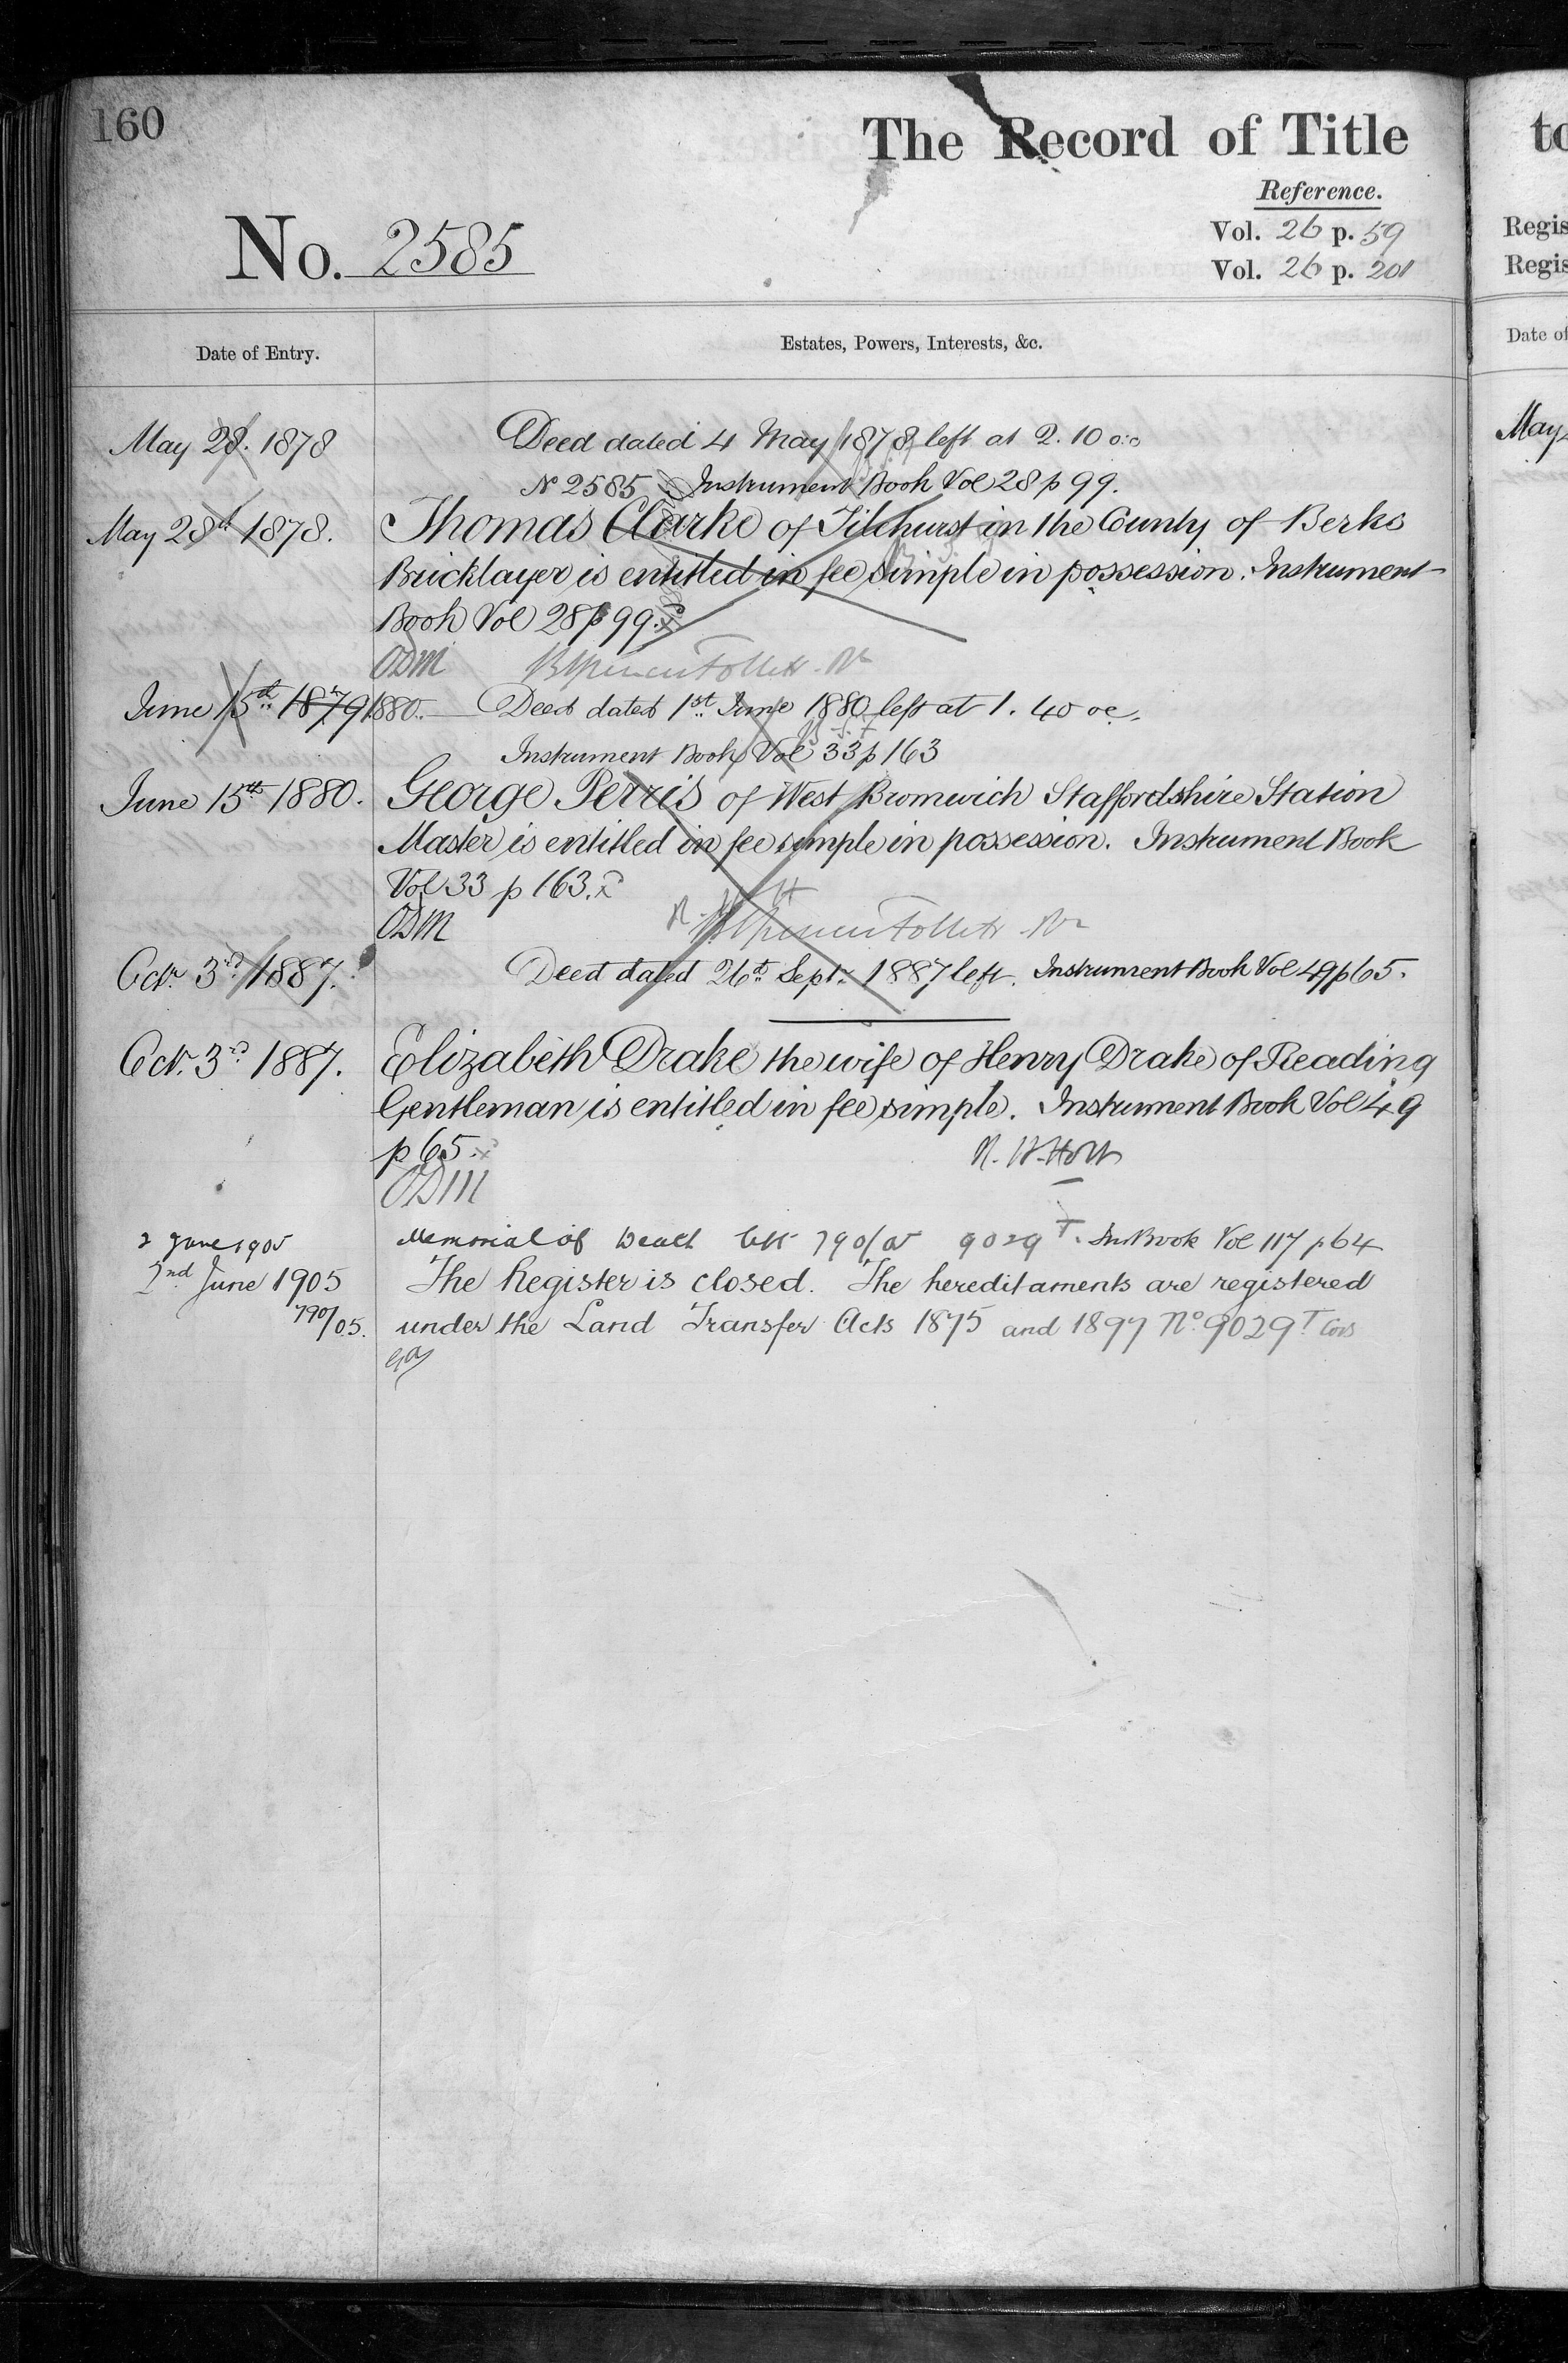 160
The Record of Title
Reference.
Vol. 26 p. 59
No. 2585
Vol. 26 p. 201
Date of Entry.
Estates, Powers, Interests, &c.
May 28. 1878
Deed dated 4 May 1878 left at 2.10 o:c
No 2585 Instrument Book Vol 28 p 99.
May 28th 1878.
Thomas Clarke of Tilehurst in the County of Berks
Bricklayer is entitled in fee simple in possession. Instrument
Book Vol 28 p 99.
ODM
June 15th 1879 1880.
Deed dated 1st June 1880 left at 1. 40 oc.
Instrument Book Vol 33 p 163
June 15th 1880.
George Perris of West Bromwich Staffordshire Station
Master is entitled in fee simple in possession. Instrument Book
Vol 33 p 163.
ODM
Octr. 3rd 1887.
Deed dated 26th Septr. 1887 left. Instrument Book Vol 49 p 65.
Octr. 3rd 1887.
Elizabeth Drake the wife of Henry Drake of Reading
Gentleman is entitled in fee simple. Instrument Book Vol 49
p 65.
R. H. Holt
ODM
2 June 1905
Memorial of 790/05 9029 T. Ins Book Vol 117 p 64
2nd June 1905
The Register is closed. The hereditaments are registered
790/05.
under the Land Transfer Acts 1875 and 1897 No. 9029 T
to
Regis
Regis
Date of
May